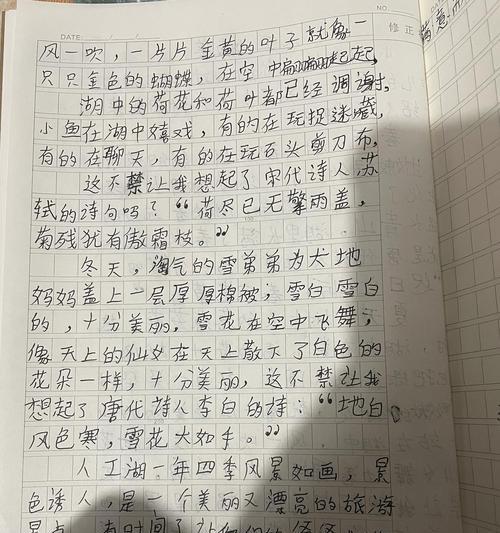 DATE: / / NO.
修 正
风一吹，一片片金黄的叶子就象一
只只金色的蝴蝶，在空中翩翩起起，
湖中的荷花和荷叶都已经凋谢，
小鱼在湖中嬉戏，有的在玩捉迷藏，
有的在聊天，有的在玩石头剪刀布，
这不禁让我想起了宋代诗人苏
轼的诗句吗？“荷尽已无擎雨盖，
菊残犹有傲霜枝。”
冬天，淘气的雪弟弟为大地
妈妈盖上一层厚厚棉被，雪白雪白
的，十分美丽，雪花在空中飞舞，
像天上的仙女在天上散下了白色的
花朵一样，十分美丽，这不禁让我
想起了唐代诗人李白的诗：“地白
风色寒，雪花大如手。”
人工湖一年四季风景如画，景
色诱人，是一个美丽又漂亮的旅游
景点，有时间了让你们